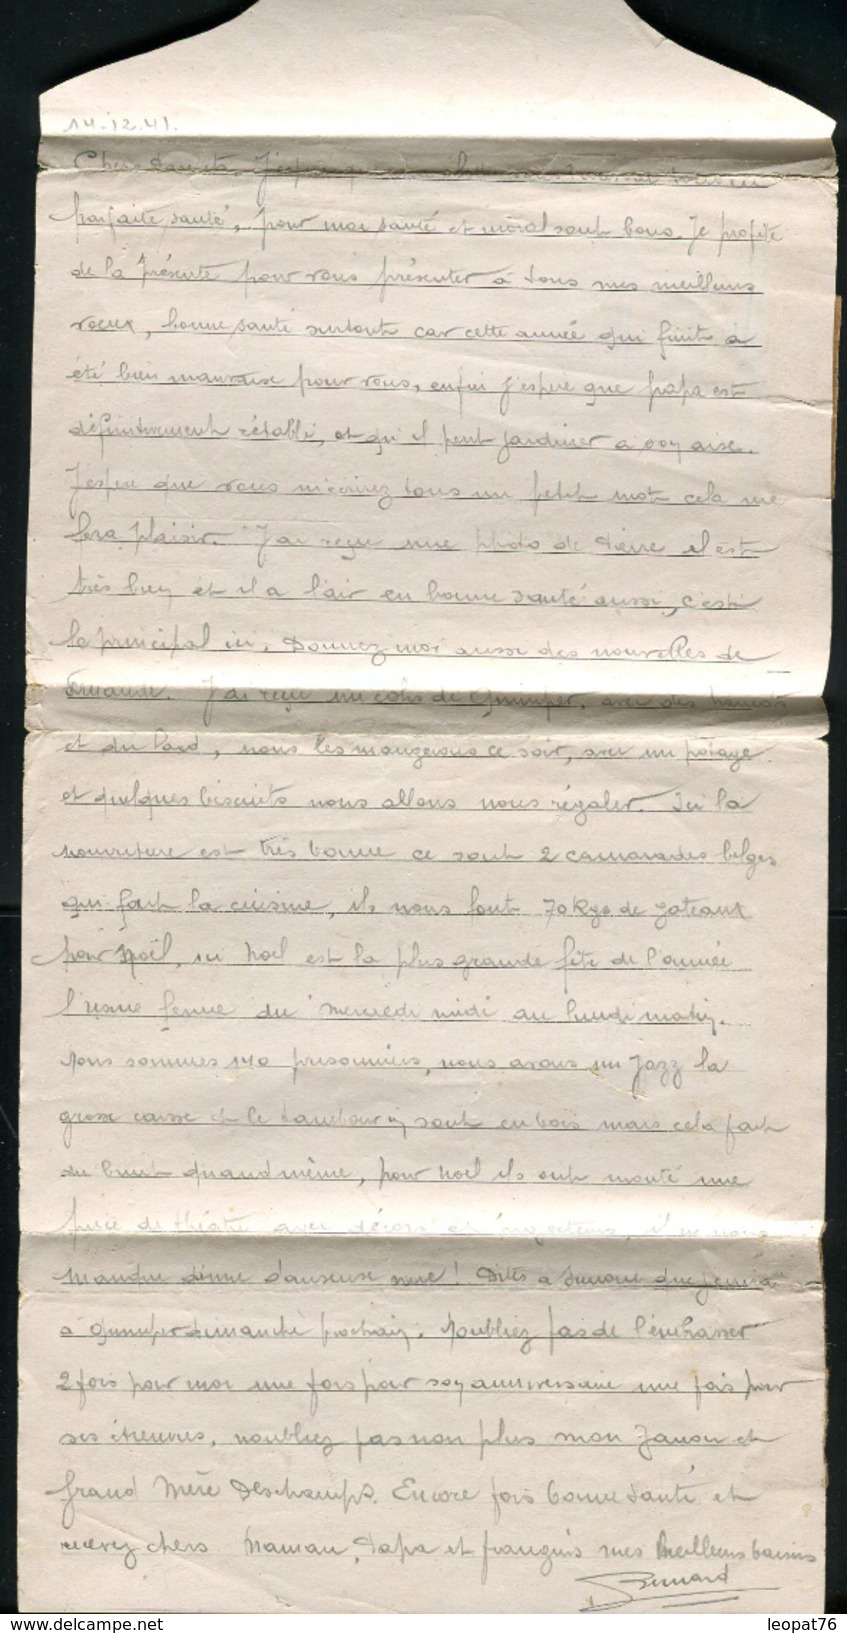 14-12-41.
Chers Parents. J'espère que
parfaite santé, pour moi santé et moral sont bons. Je profite
de la présente pour vous présenter à tous mes meilleurs
voeux, bonne santé surtout car cette année qui finit a
été bien mauvaise pour vous, enfin j'espère que papa est
définitivement rétabli, et qu'il peut jardiner à son aise.
J'espère que vous m'écrirez tous un petit mot cela me
fera plaisir. J'ai reçu une photo de Pierre il est
très bien et il a l'air en bonne santé aussi, c'est
le principal ici. Donnez-moi aussi des nouvelles de
Fernande. J'ai reçu un colis de Quimper, avec des haricots
et du lard, nous les mangerons ce soir, avec un potage
et quelques biscuits nous allons nous régaler. Ici la
nourriture est très bonne ce sont 2 camarades belges
qui font la cuisine, ils nous font 70 kgs de gateaux
pour Noël, ici Noël est la plus grande fête de l'année
l'usine ferme du Mercredi midi au lundi matin.
Nous sommes 140 prisonniers, nous avons un Jazz la
grosse caisse et le tambourin sont en bois mais cela fait
du bruit quand même, pour Noël ils ont monté une
pièce de théâtre avec décors et projecteurs, il ne nous
manque danseuse nue! Dites a Simone que j'écrirai
à Quimper dimanche prochain. Noubliez pas de l'embrasser
2 fois pour moi une fois pour son anniversaire une fois pour
ses étrennes, noubliez pas non plus mon Janou et
Grand Mère Deschamps. Encore fois bonne santé et
recevez chers Maman, Papa et françois mes Meilleurs baisers
Bernard
leopat76